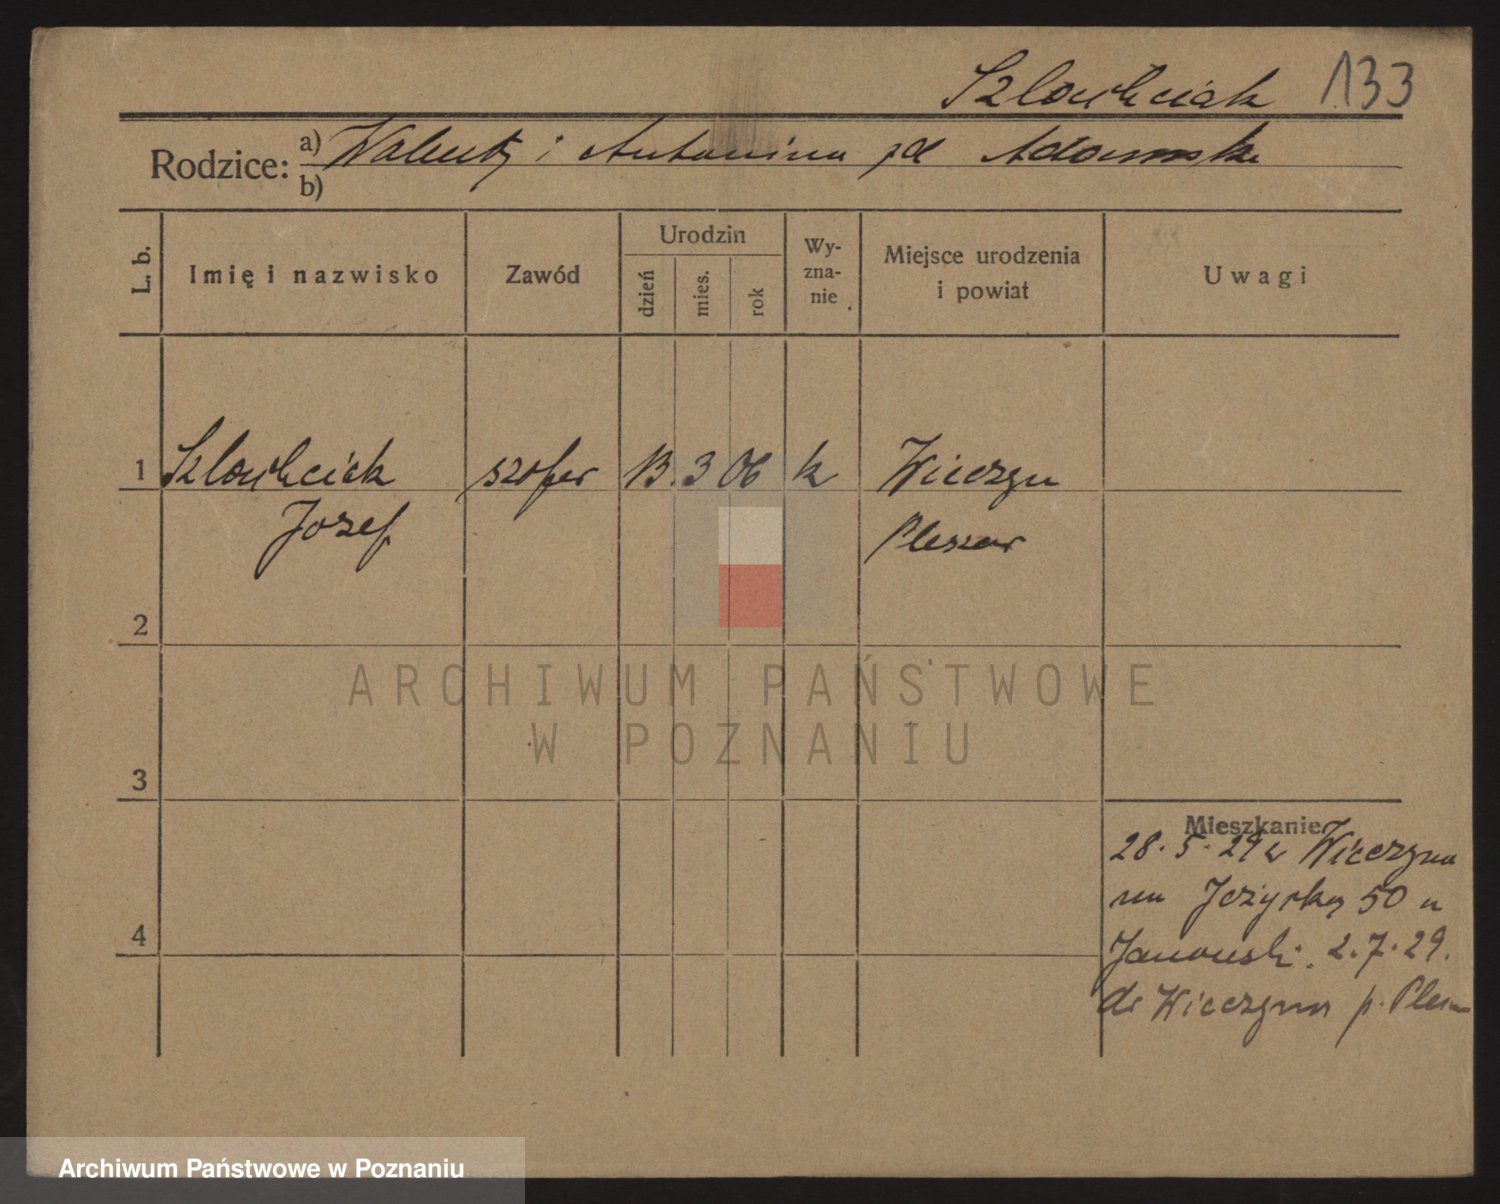 133
Rodzice: a) Walenty i Antonina zd Adamska
b)
L. b.
Imię i nazwisko
Zawód
Urodzin
dzień
mies.
rok
Wy-
zna-
nie
Miejsce urodzenia
i powiat
Uwagi
1 szofer 13. 3 06 k Wieczyn
Józef Pleszew
2
3
4
Mieszkanie
28.5.29 z Wieczyna
na Jeżycką 50 u
Janowski. 2.7.29.
do Wieczyna p. Plesz
ARCHIWUM PAŃSTWOWE
W POZNANIU
Archiwum Państwowe w Poznaniu